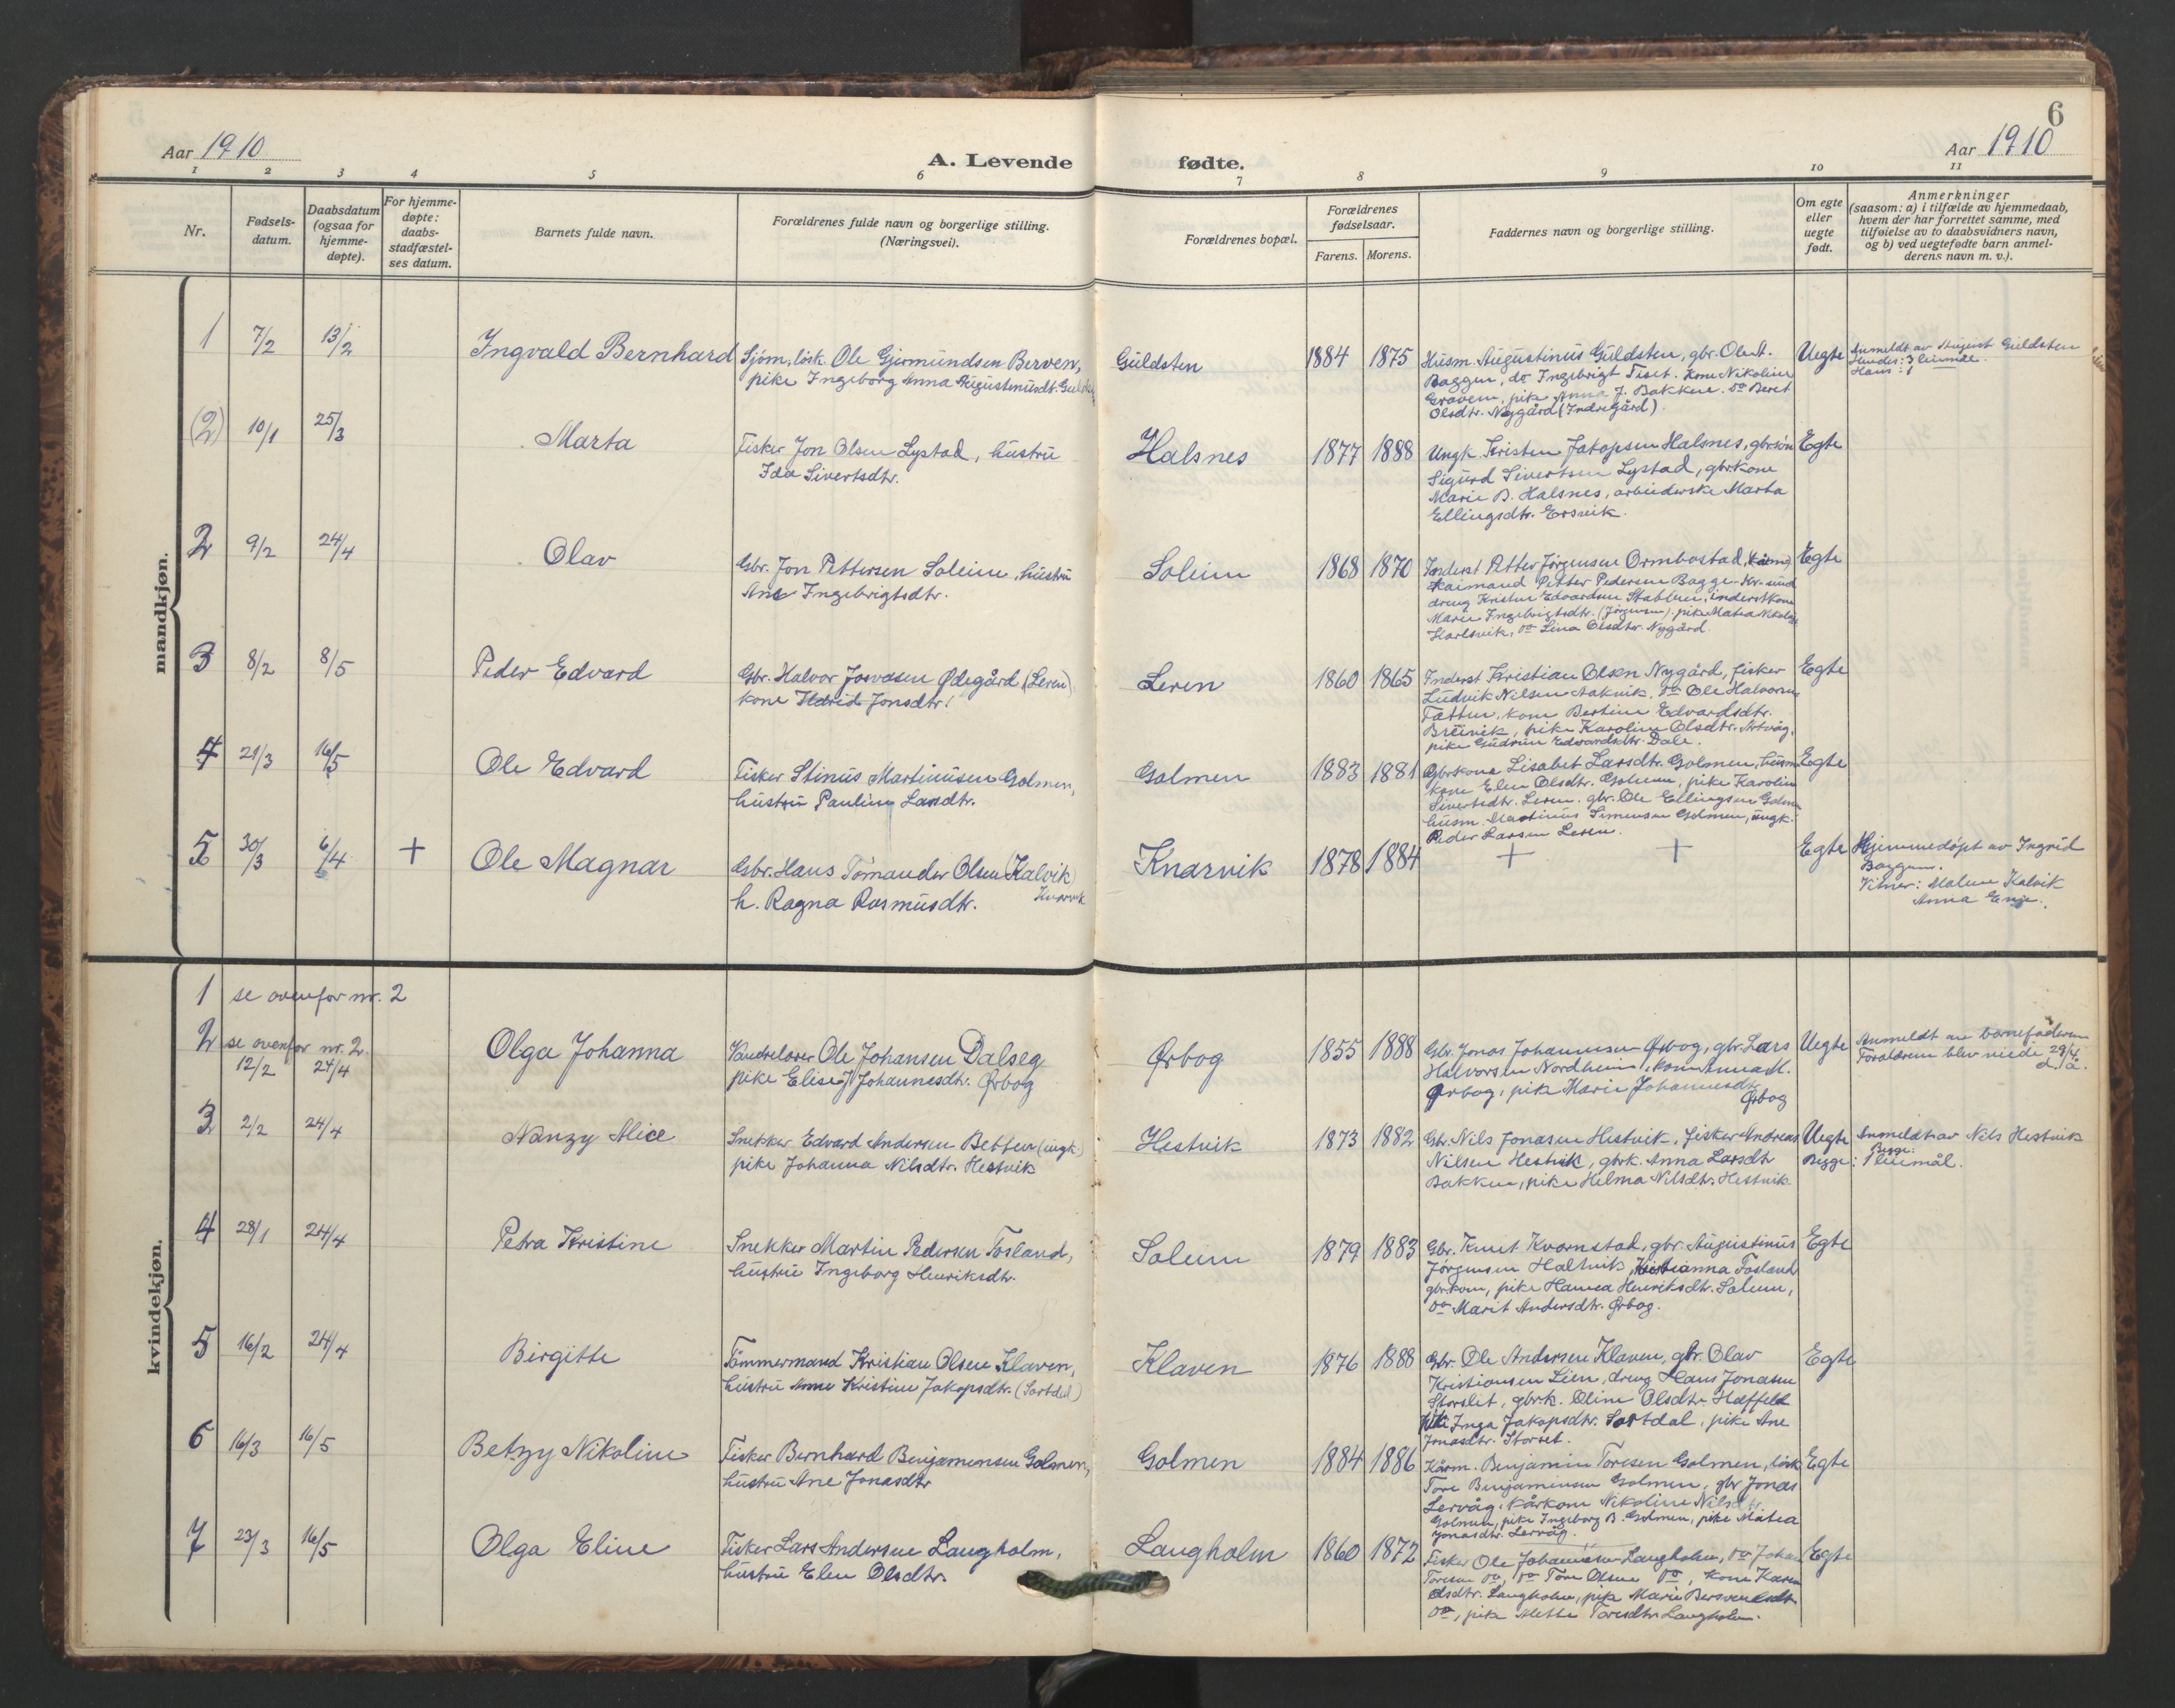 6
Aar 1910
A. Levende
fødte.
Aar 1910
1 2 3 4 5 6 7 8 9 10 11
Nr.
Fødsels-
datum.
Daabsdatum
(ogsaa for
hjemme-
døpte).
For hjemme-
døpte:
daabs-
stadfæstel-
ses datum.
Barnets fulde navn.
Forældrenes fulde navn og borgerlige stilling.
(Næringsvei).
Forældrenes bopæl.
Forældrenes
fødselsaar.
Farens. Morens.
Faddernes navn og borgerlige stilling.
Om egte
eller
uegte
født.
Anmerkninger
(saasom: a) i tilfælde av hjemmedaab,
hvem der har forrettet samme, med
tilføielse av to daabsvidners navn,
og b) ved uegtefødte barn anmel-
derens navn m. v.).
mandkjøn.
1 7/2 13/2 Ingvald Bernhard
Sjøm. løsk. Ole Gjermundsen Berven,
pike Ingeborg Anna Augustinusdt.
Guldsten 1884 1875
Husm. Augustinus Guldsten, gbr. Ole A.
Baggen, do Ingebrigt Fiset. Kone Nikoline
Graven, pike Anna J. Bakken. do Beret
Olsdtr. Nygård (Indregård).
Uegte
Anmeldt av August Guldsten
Hendes: 3 leiermål
Hans: 1
(2) 10/1 25/3 Marta
Fisker Jon Olsen Lystad, hustru
Ida Sivertsdtr.
Halsnes 1877 1888
Ungk. Kristen Jakopsen Halsnes, gbrsøn
Sigurd Sivertsen Lystad, gbrkone
Marie B. Halsnes, arbeiderske Marta
Ellingsdtr. Ersvik.
Egte
2 9/2 24/4 Olav
Gbr. Jon Pettersen Soleim, hustru
Ane Ingebrigtsdtr.
Soleim 1868 1870
Inderst Petter Jørgensen Ormbostad,
Petter Pedersen Bagge Kr.sund
dreng Kristen Edvardsen Stabben, inderstkone
Marie Ingebrigtsdtr. (Jørgensen), pike Matea
Karlsvik, do Lina Olsdtr. Nygård.
Egte
3 8/2 8/5 Peder Edvard
Gbr. Halvor Ødegård (Leren)
kone Jonsdtr.
Leren 1860 1865
Inderst Kristian Olsen Nygård, fisker
Ludvik Nilsen Aakvik, do Ole Halvorsen
Tætten, kone Bertine Edvardsdtr.
Breivik, pike Karoline Olsdtr. Artvåg,
pike Gudrun Edvardsdtr. Dale.
Egte
4 21/3 16/5 Ole Edvard
Fisker Stinus Martinusen Golmen,
hustru Pauline Larsdtr.
Golmen 1883 1881
Gbrkone Lisabet Larsdtr. Golmen, husm.
kone Elen Olsdtr. Golmen, pike Karoline
Sivertsdtr. Leren. gbr. Ole Ellingsen Golmen
husm. Martinus Simensen Golmen, ungk.
Peder Larsen Leren.
Egte
5 30/3 6/4 + Ole Magnar
Gbr. Hans Tomander Olsen (Kalvik)
Knarvik
h. Ragna Rasmusdtr.
Knarvik 1878 1884 + +
Egte
Hjemmedøpt av Ingrid
Baggen.
Vitner: Malene Kalvik
Anna Enge.
kvindekjøn.
1 se ovenfor nr. 2
2 se ovenfor nr. 2.
12/2 24/4 Olga Johanna
Ole Johansen Dalseg
pike Elise J Johannesdtr. Ørbog
Ørbog 1855 1888
Gbr. Jonas Johannesen Ørbog, gbr. Lars
Halvorsen Nordheim, kone Anna M.
Ørbog, pike Marie Johannesdtr
Ørbog
Uegte
Anmeldt av barnefaderen
Forældrene blev viede 29/4
d. å.
3 2/2 24/4 Nanzy Alice
Snekker Edvard Andersen Betten (ungk.)
pike Johanna Nilsdtr. Hestvik
Hestvik 1873 1882
Gbr. Nils Jonasen Hestvik, fisker Andreas
Nilsen Hestvik, gbrk. Anna Larsdtr
Bakken, pike Helma Nilsdtr. Hestvik
Uegte
Anmeldt av Nils Hestvik
Begge: 1 leiermål.
4 28/1 24/4 Petra Kristine
Snekker Martin Pedersen Fosland,
hustru Ingeborg Henriksdtr.
Solem 1879 1883
Gbr. Knut Kvernstad, gbr. Augustinus
Jørgensen Halsvik, Kristianna Fosland
gbrkone, pike Hanna Henriksdtr. Solem,
do Marit Andersdtr. Ørbog.
Egte
5 16/2 24/4 Birgitte
Tømmermand Kristian Olsen Klaven,
hustru Anne Kristine Jakopsdtr. (Sortdal)
Klaven 1876 1888
Gbr. Ole Andersen Klaven, gbr. Olav
Kristiansen Lien, dreng Hans Jonasen
Storslet, gbrk. Oline Olsdtr. Haffelt
pike Inga Jakopsdtr. Sortdal, pike Ane
Jonasdtr. Storset.
Egte
6 16/3 16/5 Betzy Nikoline
Fisker Bernhard Benjamensen Golmen,
hustru Ane Jonasdtr
Golmen 1884 1886
Kårm. Benjamin Toresen Golmen, løsk
Tore Benjaminsen Golmen, gbr Jonas
Lervåg, kårkone Nikoline Nilsdtr.
Golmen, pike Ingeborg B. Golmen, pike Matea
Jonasdtr. Lervåg.
Egte
7 23/3 16/5 Olga Eline
Fisker Lars Andersen Langholm,
hustru Elen Olsdtr.
Langholm 1860 1872
Fisker Ole Johannesen Langholm, do Johan
Toresen do, do Tore Olsen do, kone Karen
Olsdtr. Langholm, pike Marie
do, pike Mette Toresdtr. Langholm.
Egte